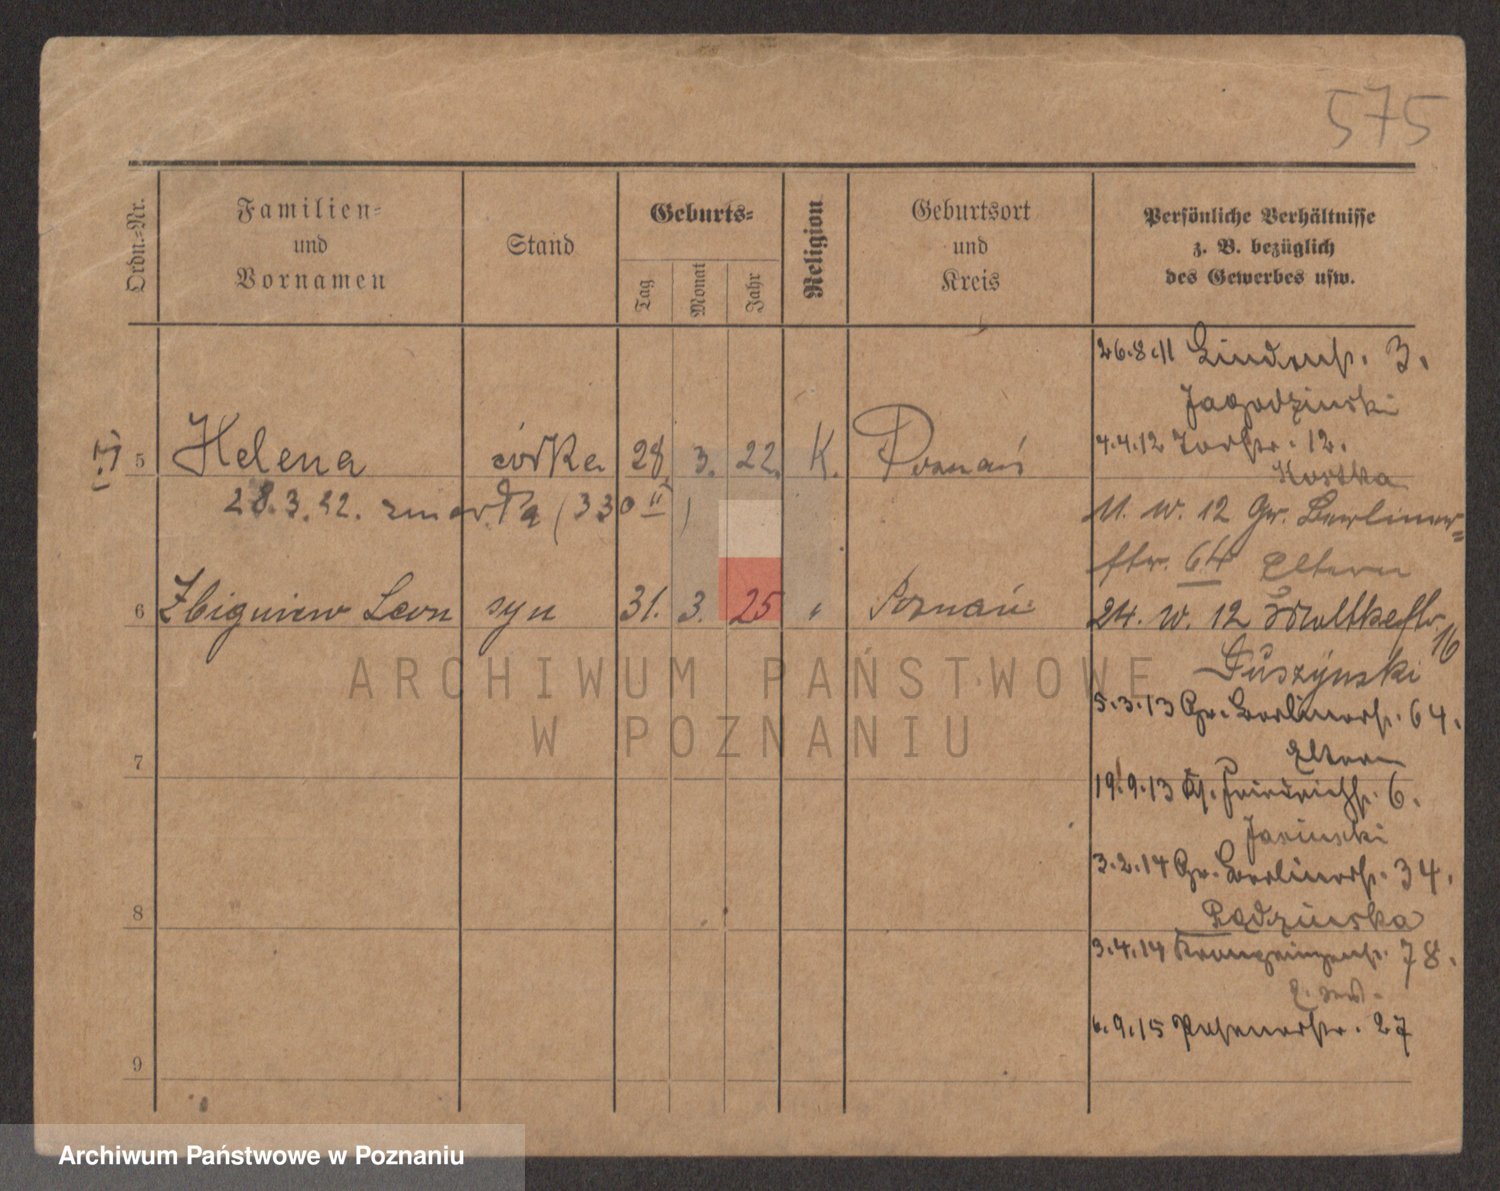 575
Ordn.-Nr.
Familien- und Vornamen
Stand
Geburts-
Tag
Monat
Jahr
Religion
Geburtsort und Kreis
Persönliche Verhältnisse
z. B. bezüglich
des Gewerbes usw.
26.8.11 Lindenstr. 3.
Jagodzinski
4.4.12 12.
Kostka
5 Helena córka 28 3. 22. K. Poznań
28.3.22. zmarła (330 II)
11. IV. 12 Gr. Berliner-
str. 64 Eltern
6 Zbigniew Leon syn 31. 3. 25 " Poznań
24. IV. 12 Moltkestr. 16
Duszyński
5.3.13 Gr. Berlinerstr. 64.
Eltern
7
19.9.13 Friedrichstr. 6.
Jasinski
3.2.14 Gr. Berlinerstr. 34.
8
3.4.14 Kronprinzenstr. 78.
6.9.15 Posenerstr. 27
9
ARCHIWUM PAŃSTWOWE
W POZNANIU
Archiwum Państwowe w Poznaniu